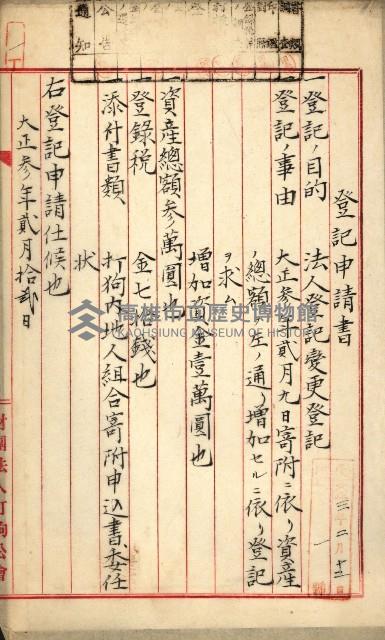 登記申請書
一登記ノ目的 法人登記變更登記
一登記ノ事由 大正参年貳月九日寄附ニ依リ資産
ノ總額左ノ通リ増加セルニ依リ登記
ヲ求ム
増加資金壹萬圓也
資産總額参萬圓也
一登錄税 金七拾錢也
一添付書類 打狗内地人組合寄附申込書、委任
状
右登記申請仕候也
大正参年貳月拾貳日
財團法人打狗公會
公告
通知
三年二月十二日
高雄市立歷史博物館
KAOHSIUNG MUSEUM OF HISTORY